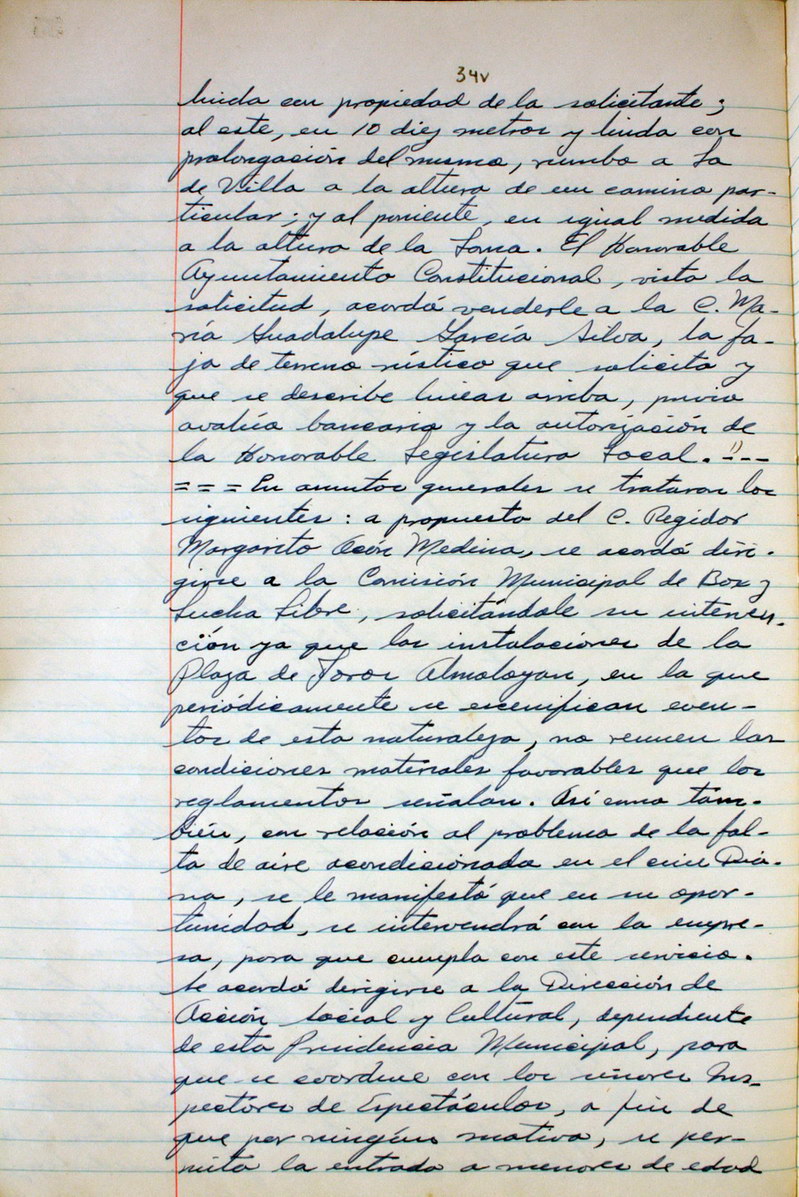 34v
linda con propiedad de la solicitante;
al este, en 10 diez metros y linda con
prolongación del mismo, rumbo a La
de Villa a la altura de un camino par-
ticular; y al poniente, en igual medida
a la altura de la Loma. El Honorable
Ayuntamiento Constitucional, vista la
solicitud, acordó venderle a la C. Ma-
ría Guadalupe García Silva, la fa-
ja de terreno rústico que solicita y
que se describe líneas arriba, previo
avalúo bancario y la autorización de
la Honorable Legislatura Local.")---
=== En asuntos generales se trataron los
siguientes: a propuesta del C. Regidor
Margarito Ocón Medina, se acordó diri-
girse a la Comisión Municipal de Box y
Lucha Libre, solicitándole su interven-
ción ya que las instalaciones de la
Plaza de Toros Almoloyan, en la que
periódicamente se escenifican even-
tos de esta naturaleza, no reunen las
condiciones materiales favorables que los
reglamentos señalan. Así como tam-
bién, con relación al problema de la fal-
ta de aire acondicionado en el cine Dia-
na, se le manifestó que en su opor-
tunidad, se intervendrá con la empre-
sa, para que cumpla con este servicio.
Se acordó dirigirse a la Dirección de
Acción Social y Cultural, dependiente
de esta Presidencia Municipal, para
que se coordine con los señores Ins-
pectores de Espectáculos, a fin de
que por ningún motivo, se per-
mita la entrada a menores de edad